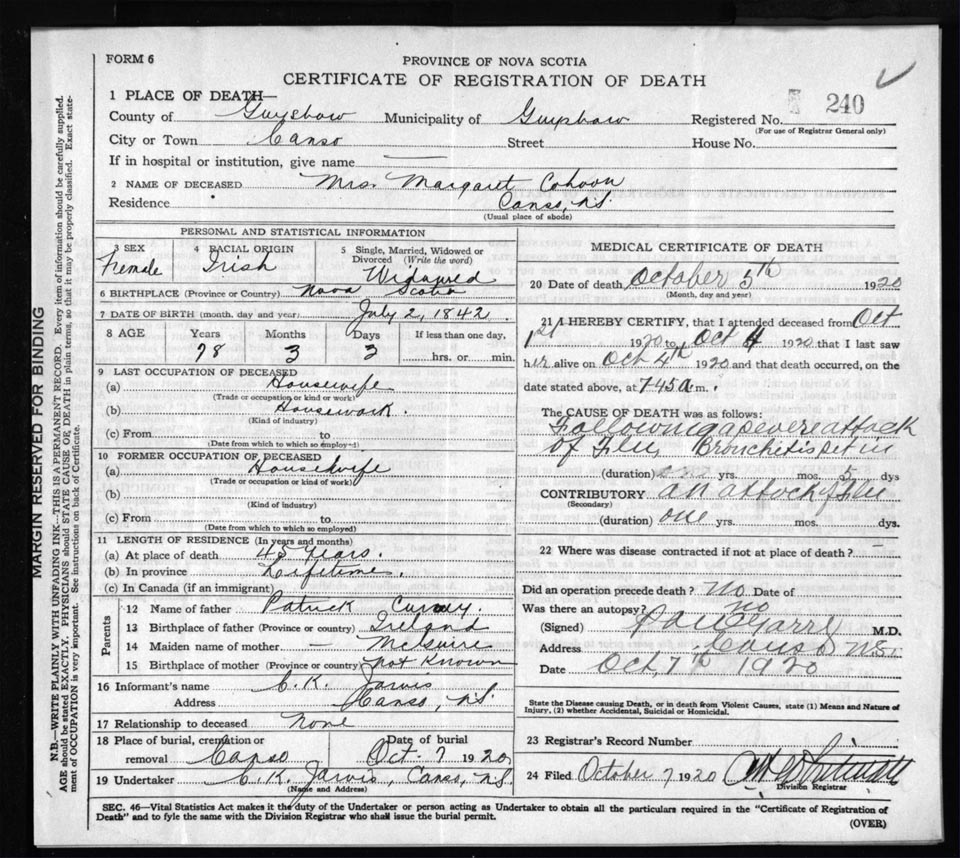 FORM 6
PROVINCE OF NOVA SCOTIA
CERTIFICATE OF REGISTRATION OF DEATH
1 PLACE OF DEATH—
County of Guysboro Municipality of Guysboro Registered No. 240
(For use of Registrar General only)
City or Town Canso Street House No.
If in hospital or institution, give name —
2 NAME OF DECEASED Mrs. Margaret Cohoon
Residence Canso, N.S.
(Usual place of abode)
PERSONAL AND STATISTICAL INFORMATION
3 SEX Female
4 RACIAL ORIGIN Irish
5 Single, Married, Widowed or Divorced (Write the word) Widowed
6 BIRTHPLACE (Province or Country) Nova Scotia
7 DATE OF BIRTH (month, day and year) July 2, 1842.
8 AGE Years Months Days If less than one day,
78 3 3 hrs. or min.
9 LAST OCCUPATION OF DECEASED
(a) Housewife
(Trade or occupation or kind or work)
(b) Housework.
(Kind of industry)
(c) From to
(Date from which to which so employed)
10 FORMER OCCUPATION OF DECEASED
(a) Housewife
(Trade or occupation or kind of work)
(b)
(Kind of industry)
(c) From to
(Date from which to which so employed)
11 LENGTH OF RESIDENCE (In years and months)
(a) At place of death 45 Years.
(b) In province Lifetime.
(c) In Canada (if an immigrant)
Parents
12 Name of father Patrick
13 Birthplace of father (Province or country) Ireland
14 Maiden name of mother — McGuire
15 Birthplace of mother (Province or country) Not Known
16 Informant's name C. K. Jarvis
Address Canso, N.S.
17 Relationship to deceased None
18 Place of burial, cremation or removal Canso Date of burial Oct 7 1920
19 Undertaker C. K. Jarvis, Canso, N.S.
(Name and Address)
MEDICAL CERTIFICATE OF DEATH
20 Date of death October 5th 1920
(Month, day and year)
21 I HEREBY CERTIFY, that I attended deceased from Oct
1st 1920 to Oct 4 1920 that I last saw
her alive on Oct 4th 1920 and that death occurred, on the
date stated above, at 7 45 a m.
The CAUSE OF DEATH was as follows:
Following a severe attack
of Flu, Bronchitis set in
(duration) yrs. mos. 5 dys
CONTRIBUTORY an attack of flu
(Secondary)
(duration) one yrs. mos. dys.
22 Where was disease contracted if not at place of death? —
Did an operation precede death? No Date of
Was there an autopsy? no
(Signed) M.D.
Address Canso N.S.
Date Oct, 7th 1920
State the Disease causing Death, or in death from Violent Causes, state (1) Means and Nature of
Injury, (2) whether Accidental, Suicidal or Homicidal.
23 Registrar's Record Number
24 Filed October 7, 1920
Division Registrar
SEC. 46—Vital Statistics Act makes it the duty of the Undertaker or person acting as Undertaker to obtain all the particulars required in the "Certificate of Registration of
Death" and to fyle the same with the Division Registrar who shall issue the burial permit.
(OVER)
MARGIN RESERVED FOR BINDING
N.B.—WRITE PLAINLY WITH UNFADING INK—THIS IS A PERMANENT RECORD. Every item of information should be carefully supplied.
AGE should be stated EXACTLY. PHYSICIANS should STATE CAUSE OF DEATH in plain terms, so that it may be properly classified. Exact state-
ment of OCCUPATION is very important. See instructions on back of Certificate.